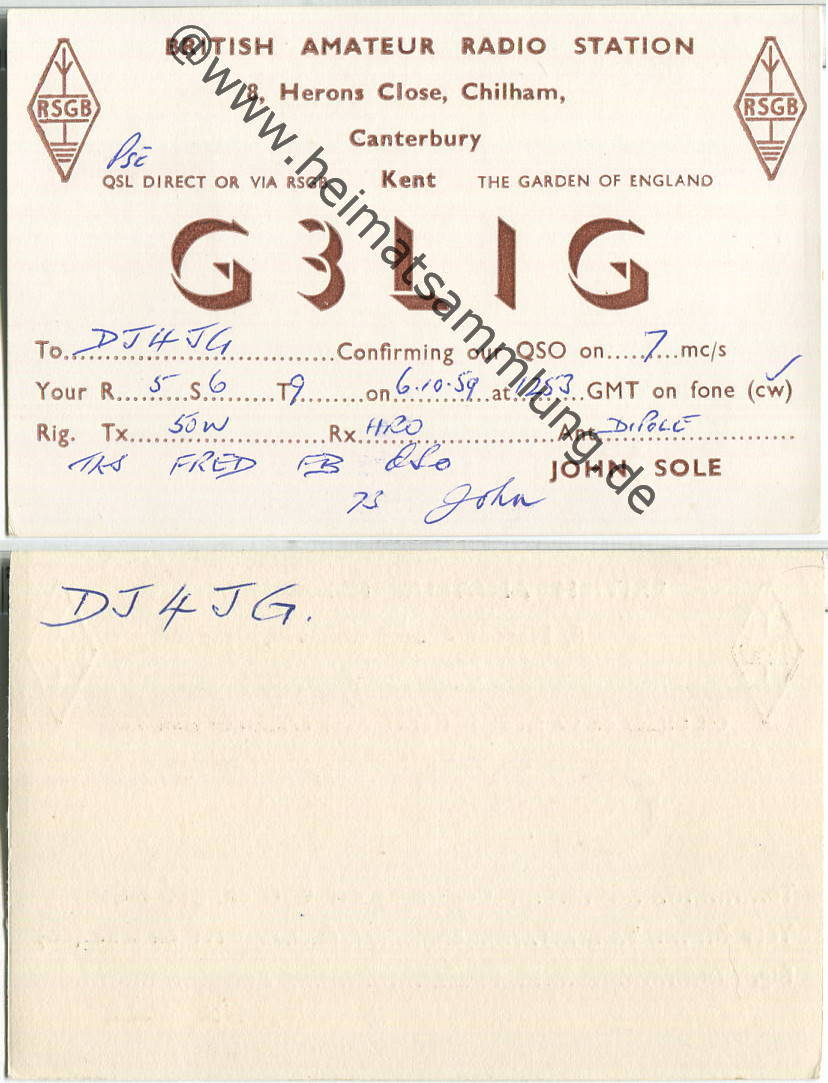 BRITISH AMATEUR RADIO STATION
8, Herons Close, Chilham,
RSGB
RSGB
Canterbury
Pse
QSL DIRECT OR VIA RSGB Kent THE GARDEN OF ENGLAND
G3LIG
To DJ4JG Confirming our QSO on 7 mc/s
Your R 5 S 6 T 9 on 6.10.59 at 1253 GMT on fone (cw)
Rig. Tx 50W Rx HRO Ant DIPOLE
TKS FRED FB QSO JOHN SOLE
73 John
@www.heimatsammlung.de
DJ4JG.